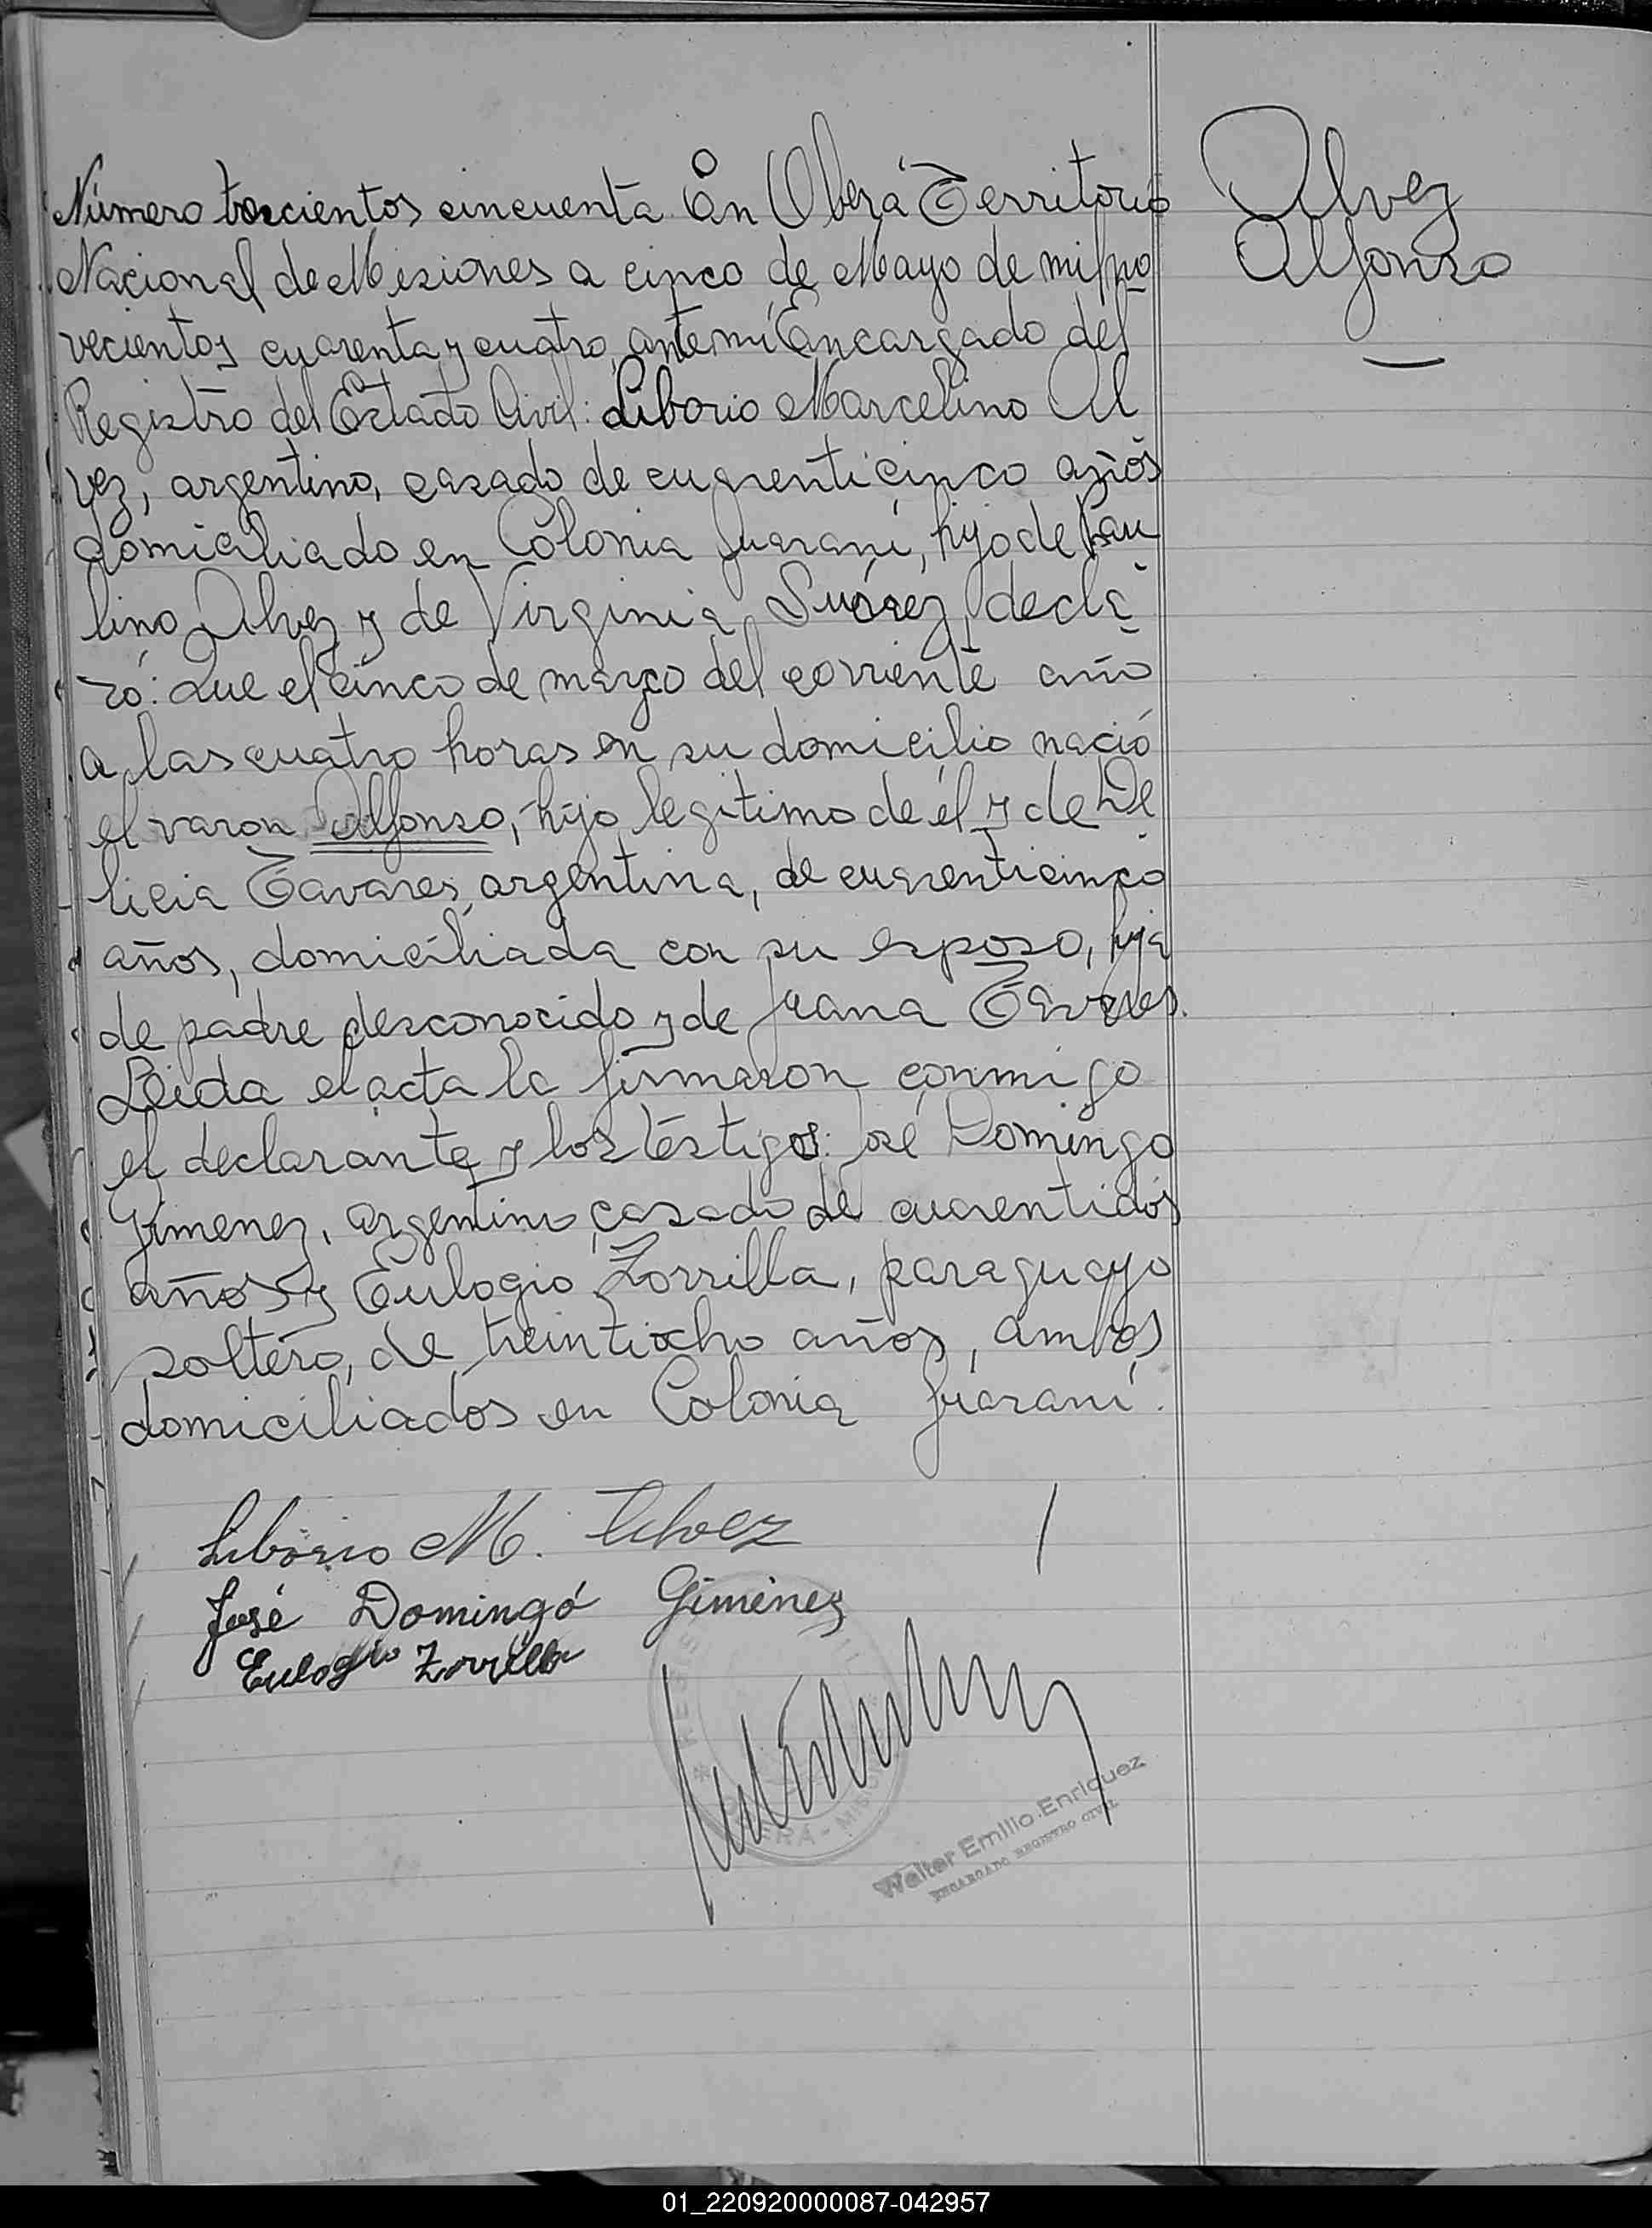 Número trescientos cincuenta En Oberá Territorio
Nacional de Misiones a cinco de Mayo de mil no
vecientos cuarenta y cuatro, ante mi Encargado del
Registro del Estado Civil: Liborio Marcelino Al
vez, argentino, casado de cuarenticinco años
domiciliado en Colonia Guaraní, hijo de Pau
lino Alvez y de Virginia Suárez, decla
ró: Que el cinco de marzo del corriente año
a las cuatro horas en su domicilio nació
el varon Alfonso, hijo legitimo de él y de De
licia Tavares, argentina, de cuarenticinco
años, domiciliada con su esposo, hija
de padre desconocido y de Juana Tavares.
Leida el acta la firmaron conmigo
el declarante y los testigos: José Domingo
Gimenez, argentino, casado de cuarentidós
años y Eulogio Zorrilla, paraguayo
soltero, de treintiocho años, ambos
domiciliados en Colonia Guaraní.
Alvez
Alfonso
Liborio M. Alvez
José Domingó Giménez
Eulogio Zorrilla
Walter Emilio Enriquez
ENCARGADO REGISTRO CIVIL
01_220920000087-042957